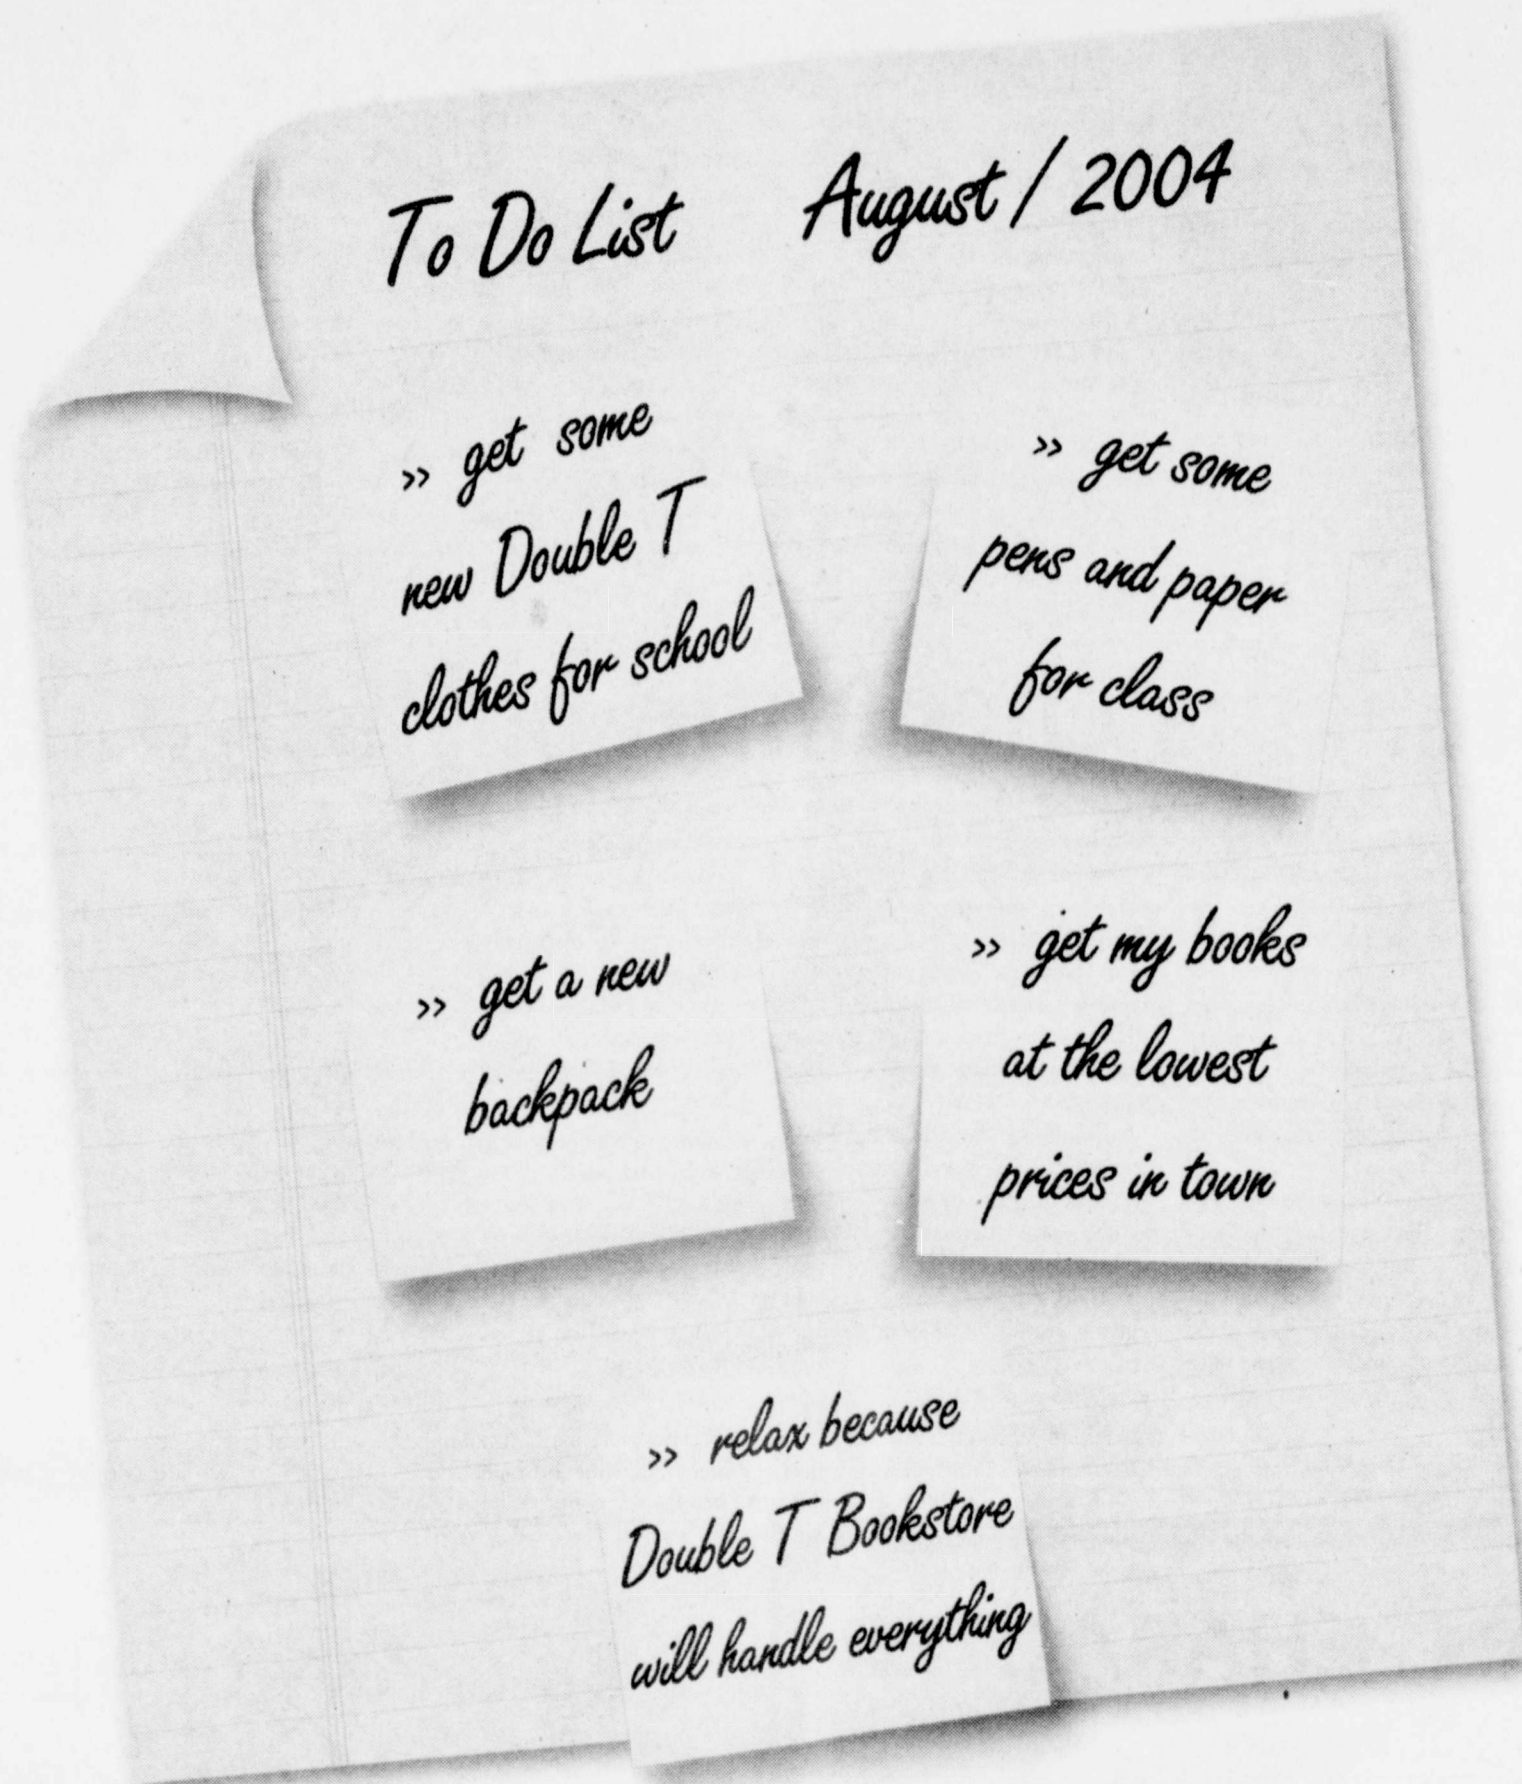 To Do List August / 2004
>> get some
new Double T
clothes for school
>> get some
pens and paper
for class
>> get a new
backpack
>> get my books
at the lowest
prices in town
>> relax because
Double T Bookstore
will handle everything